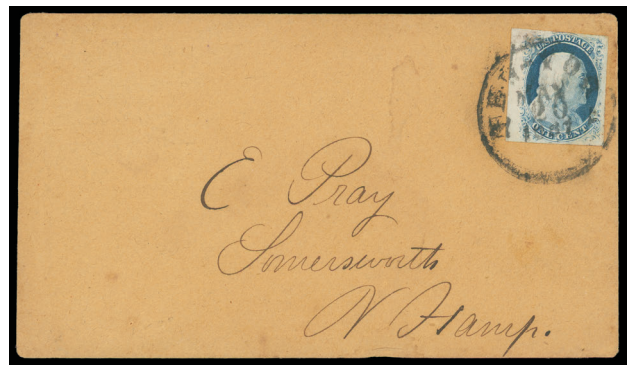 U.S. POSTAGE
ONE CENT
NEW-YORK
E Pray
Somersworth
N Hamp.